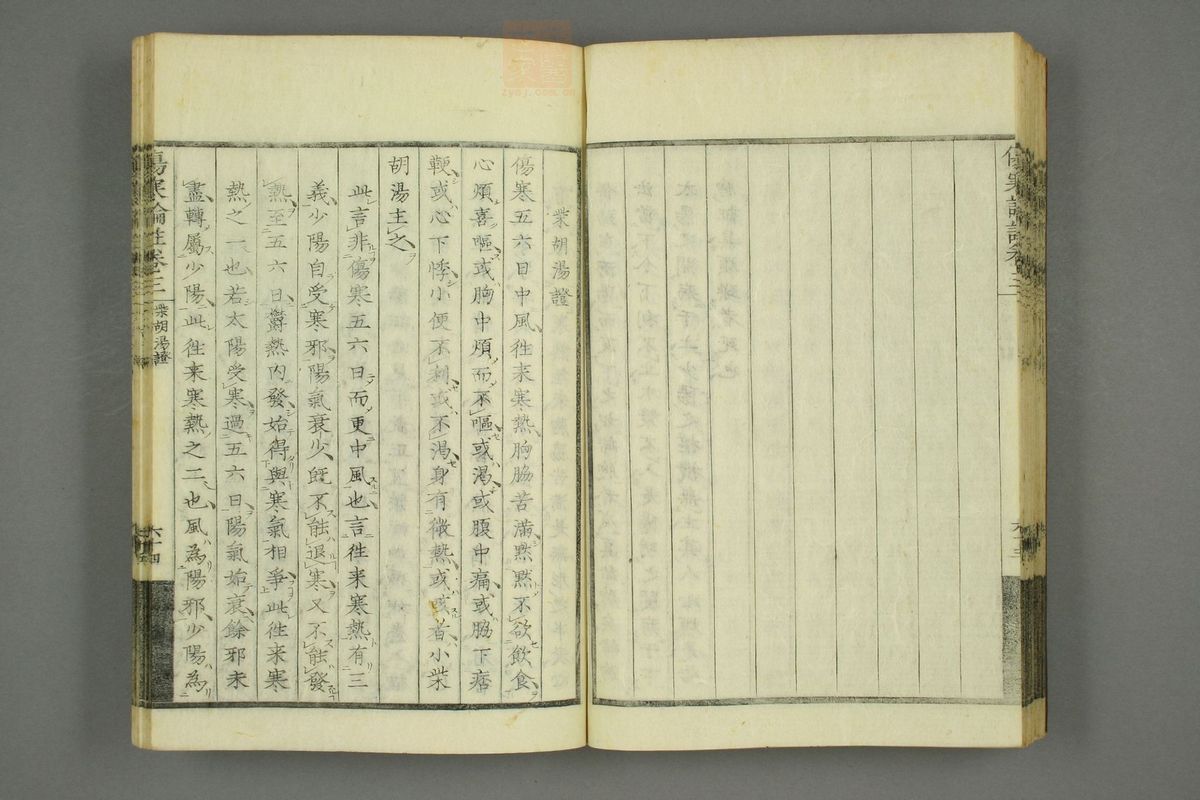 柴胡湯證
傷寒五六日中風徃来寒熱胸脇苦滿黙黙不欲飲食
心煩喜嘔或胸中煩而不嘔或渴或腹中痛或脇下痞
鞕或心下悸小便不利或不渴身有微熱或欬者小柴
胡湯主之
此言非傷寒五六日而更中風也言徃来寒熱有三
義少陽自受寒邪陽氣衰少既不能退寒又不能發
熱至五六日欝熱内發始得與寒氣相爭此徃来寒
熱之一也若太陽受寒過五六日陽氣始衰餘邪未
盡轉屬少陽此徃来寒熱之二也風為陽邪少陽為
傷寒論註卷三
柴胡湯證
六十四
zyej.com.cn